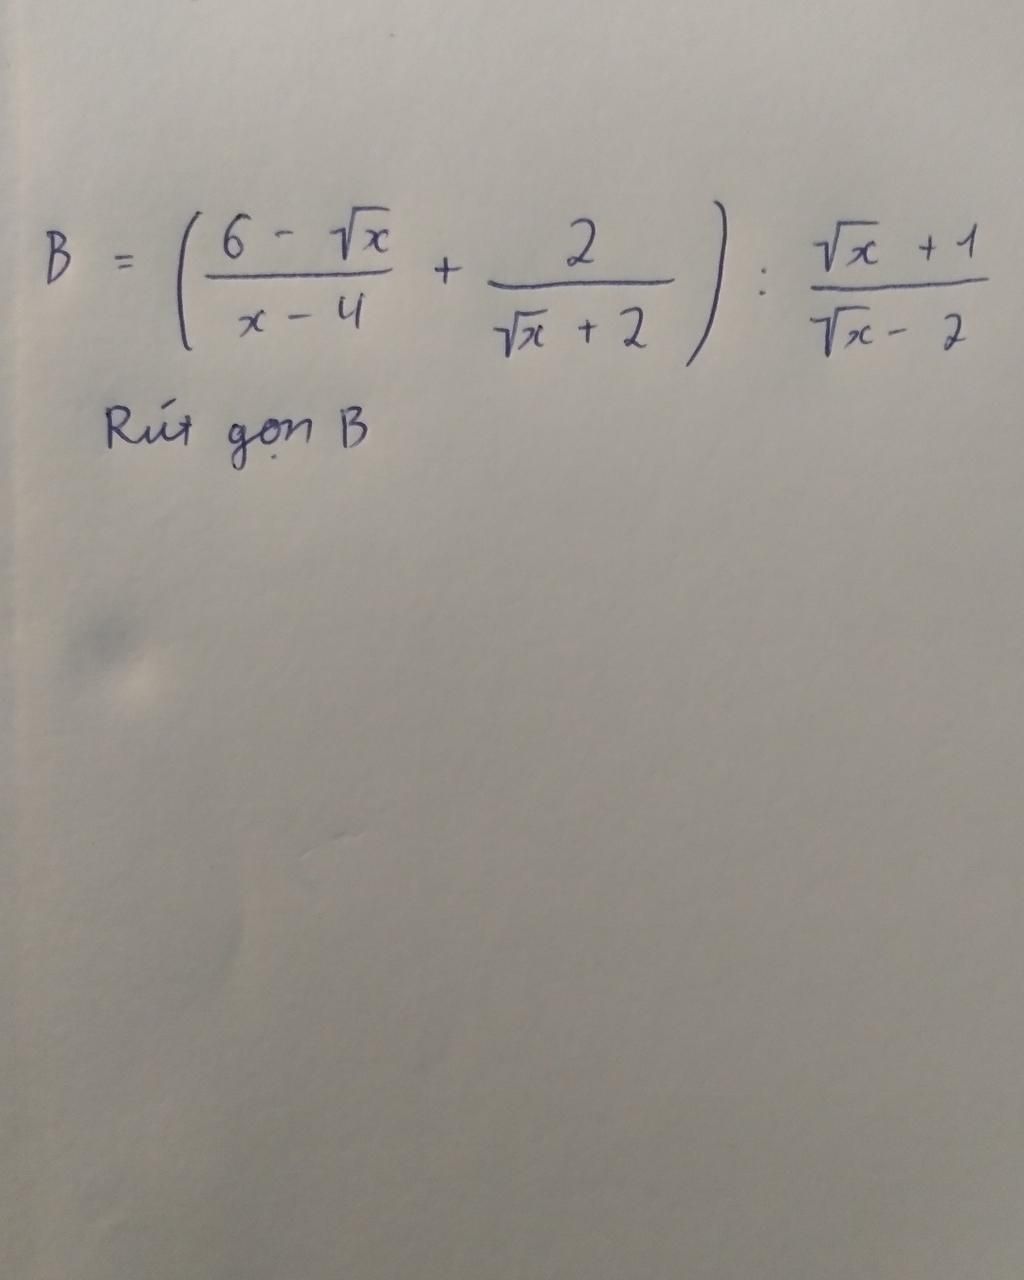 B = ( \frac{6 - \sqrt{x}}{x - 4} + \frac{2}{\sqrt{x} + 2} ) : \frac{\sqrt{x} + 1}{\sqrt{x} - 2}
Rút gọn B